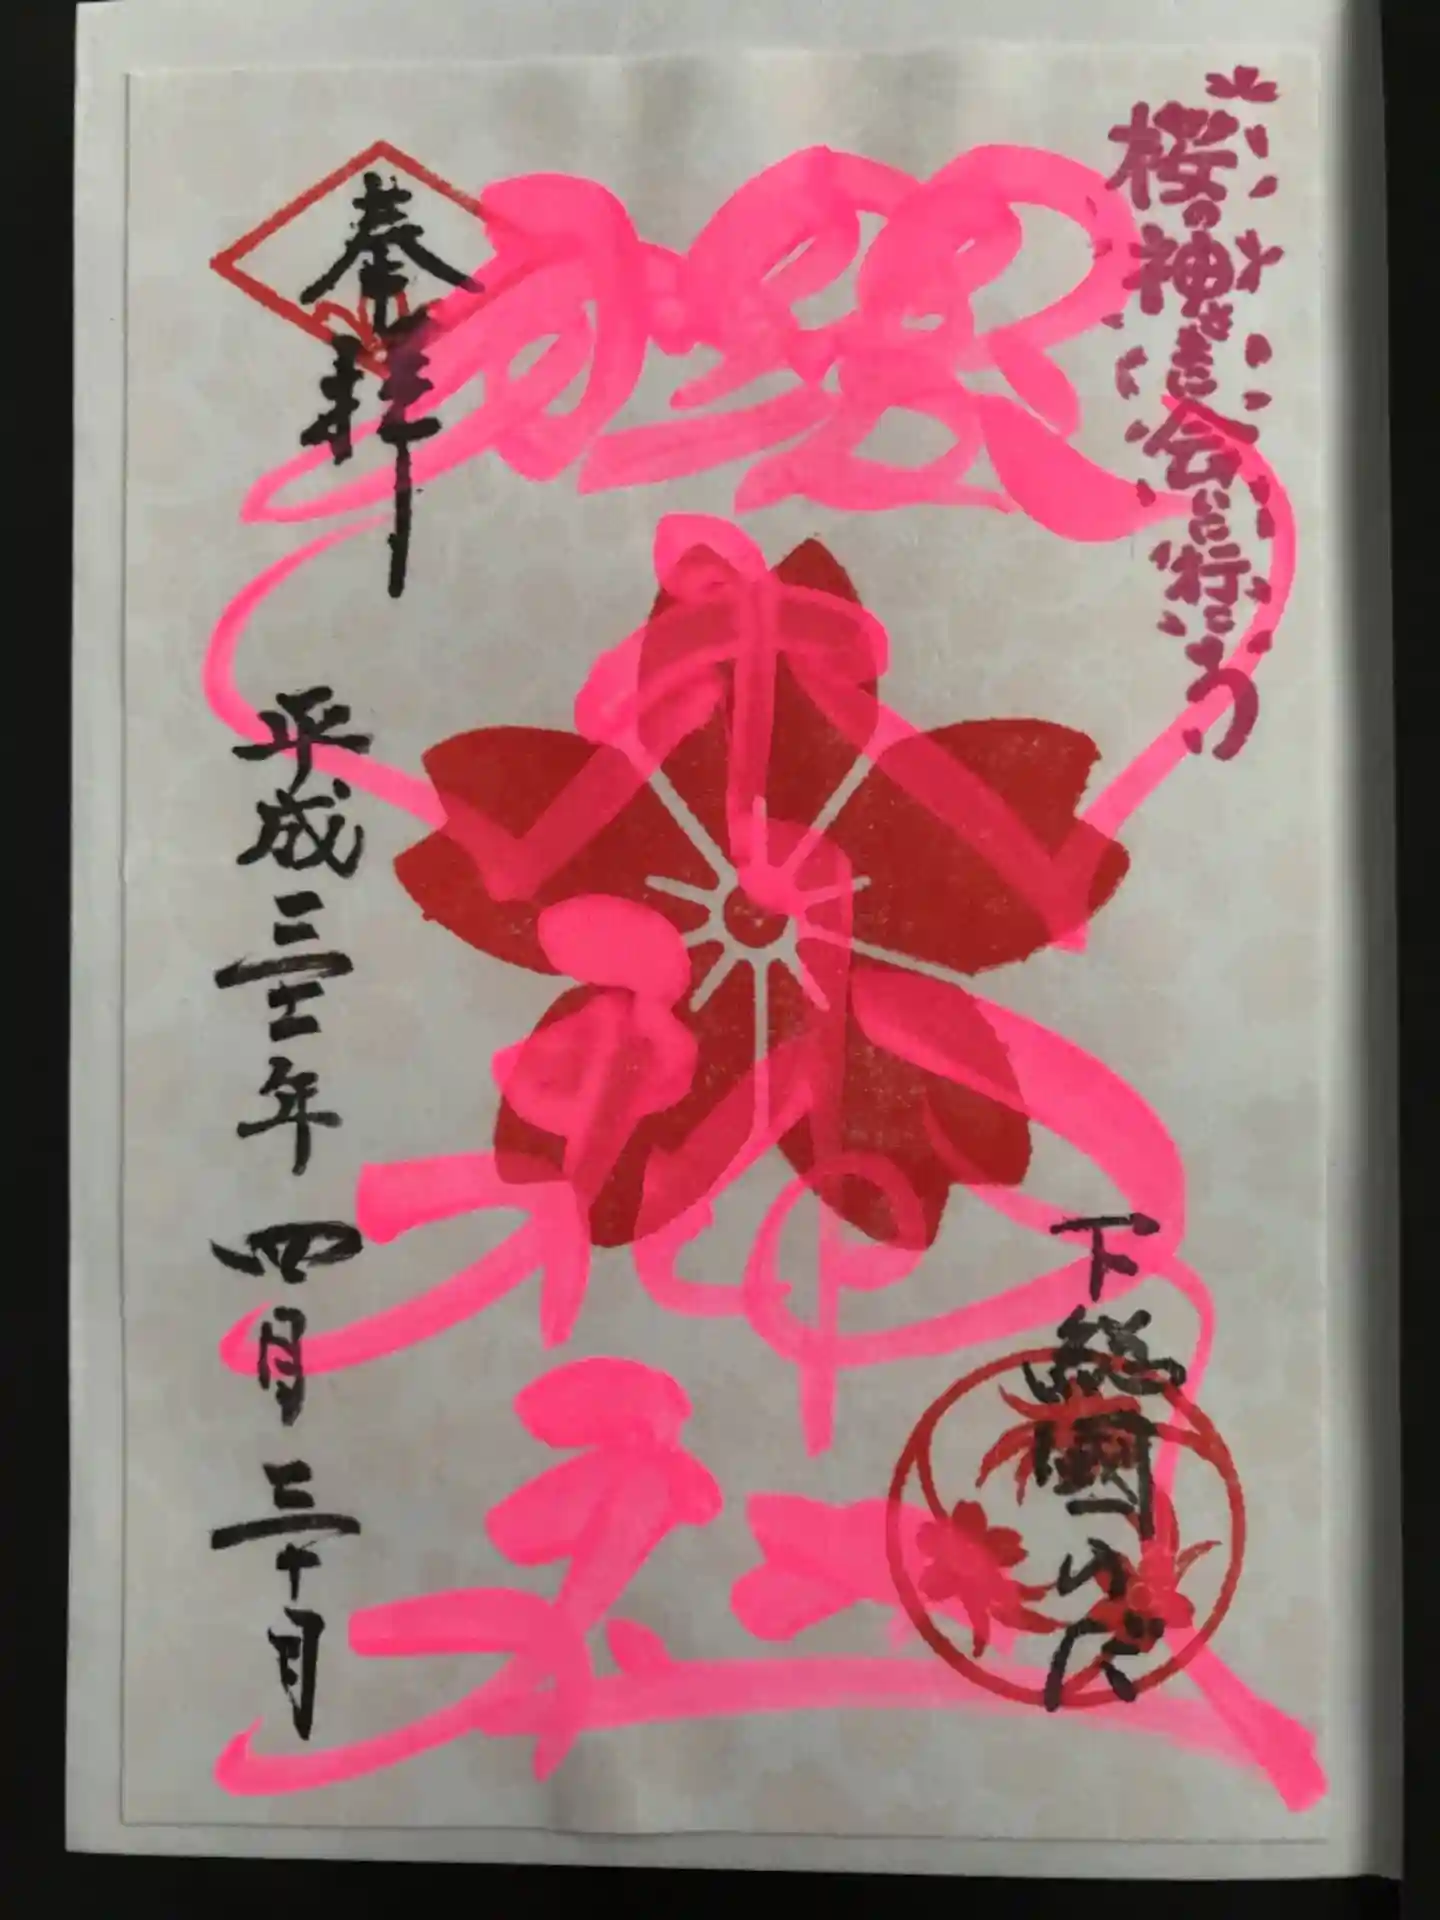 桜の神さまに会いに行こう
下総國のだ
櫻木神社
奉拝
平成三十一年四月三十日